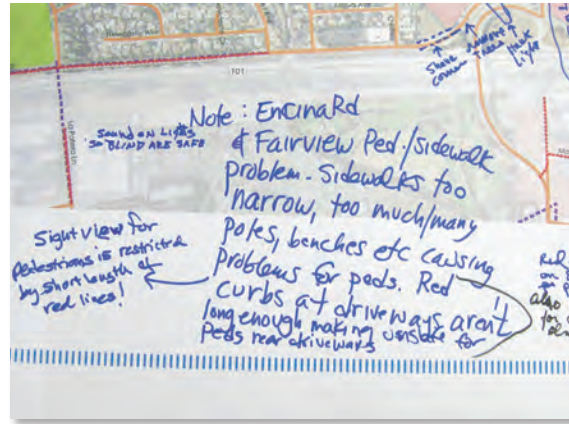 101
La Patera Ln
Share
corner
remove
trees
Light
Sound on Lights
so BLIND ARE SAFE
Note: Encina Rd
& Fairview Ped./sidewalk
problem. Sidewalks too
narrow, too much/many
poles, benches etc causing
problems for peds. Red
curbs at driveways aren't
long enough making unsafe for
Peds near driveways
Sight view for
pedestrians is restricted
by short length of
red lines!
Red
on
also
for